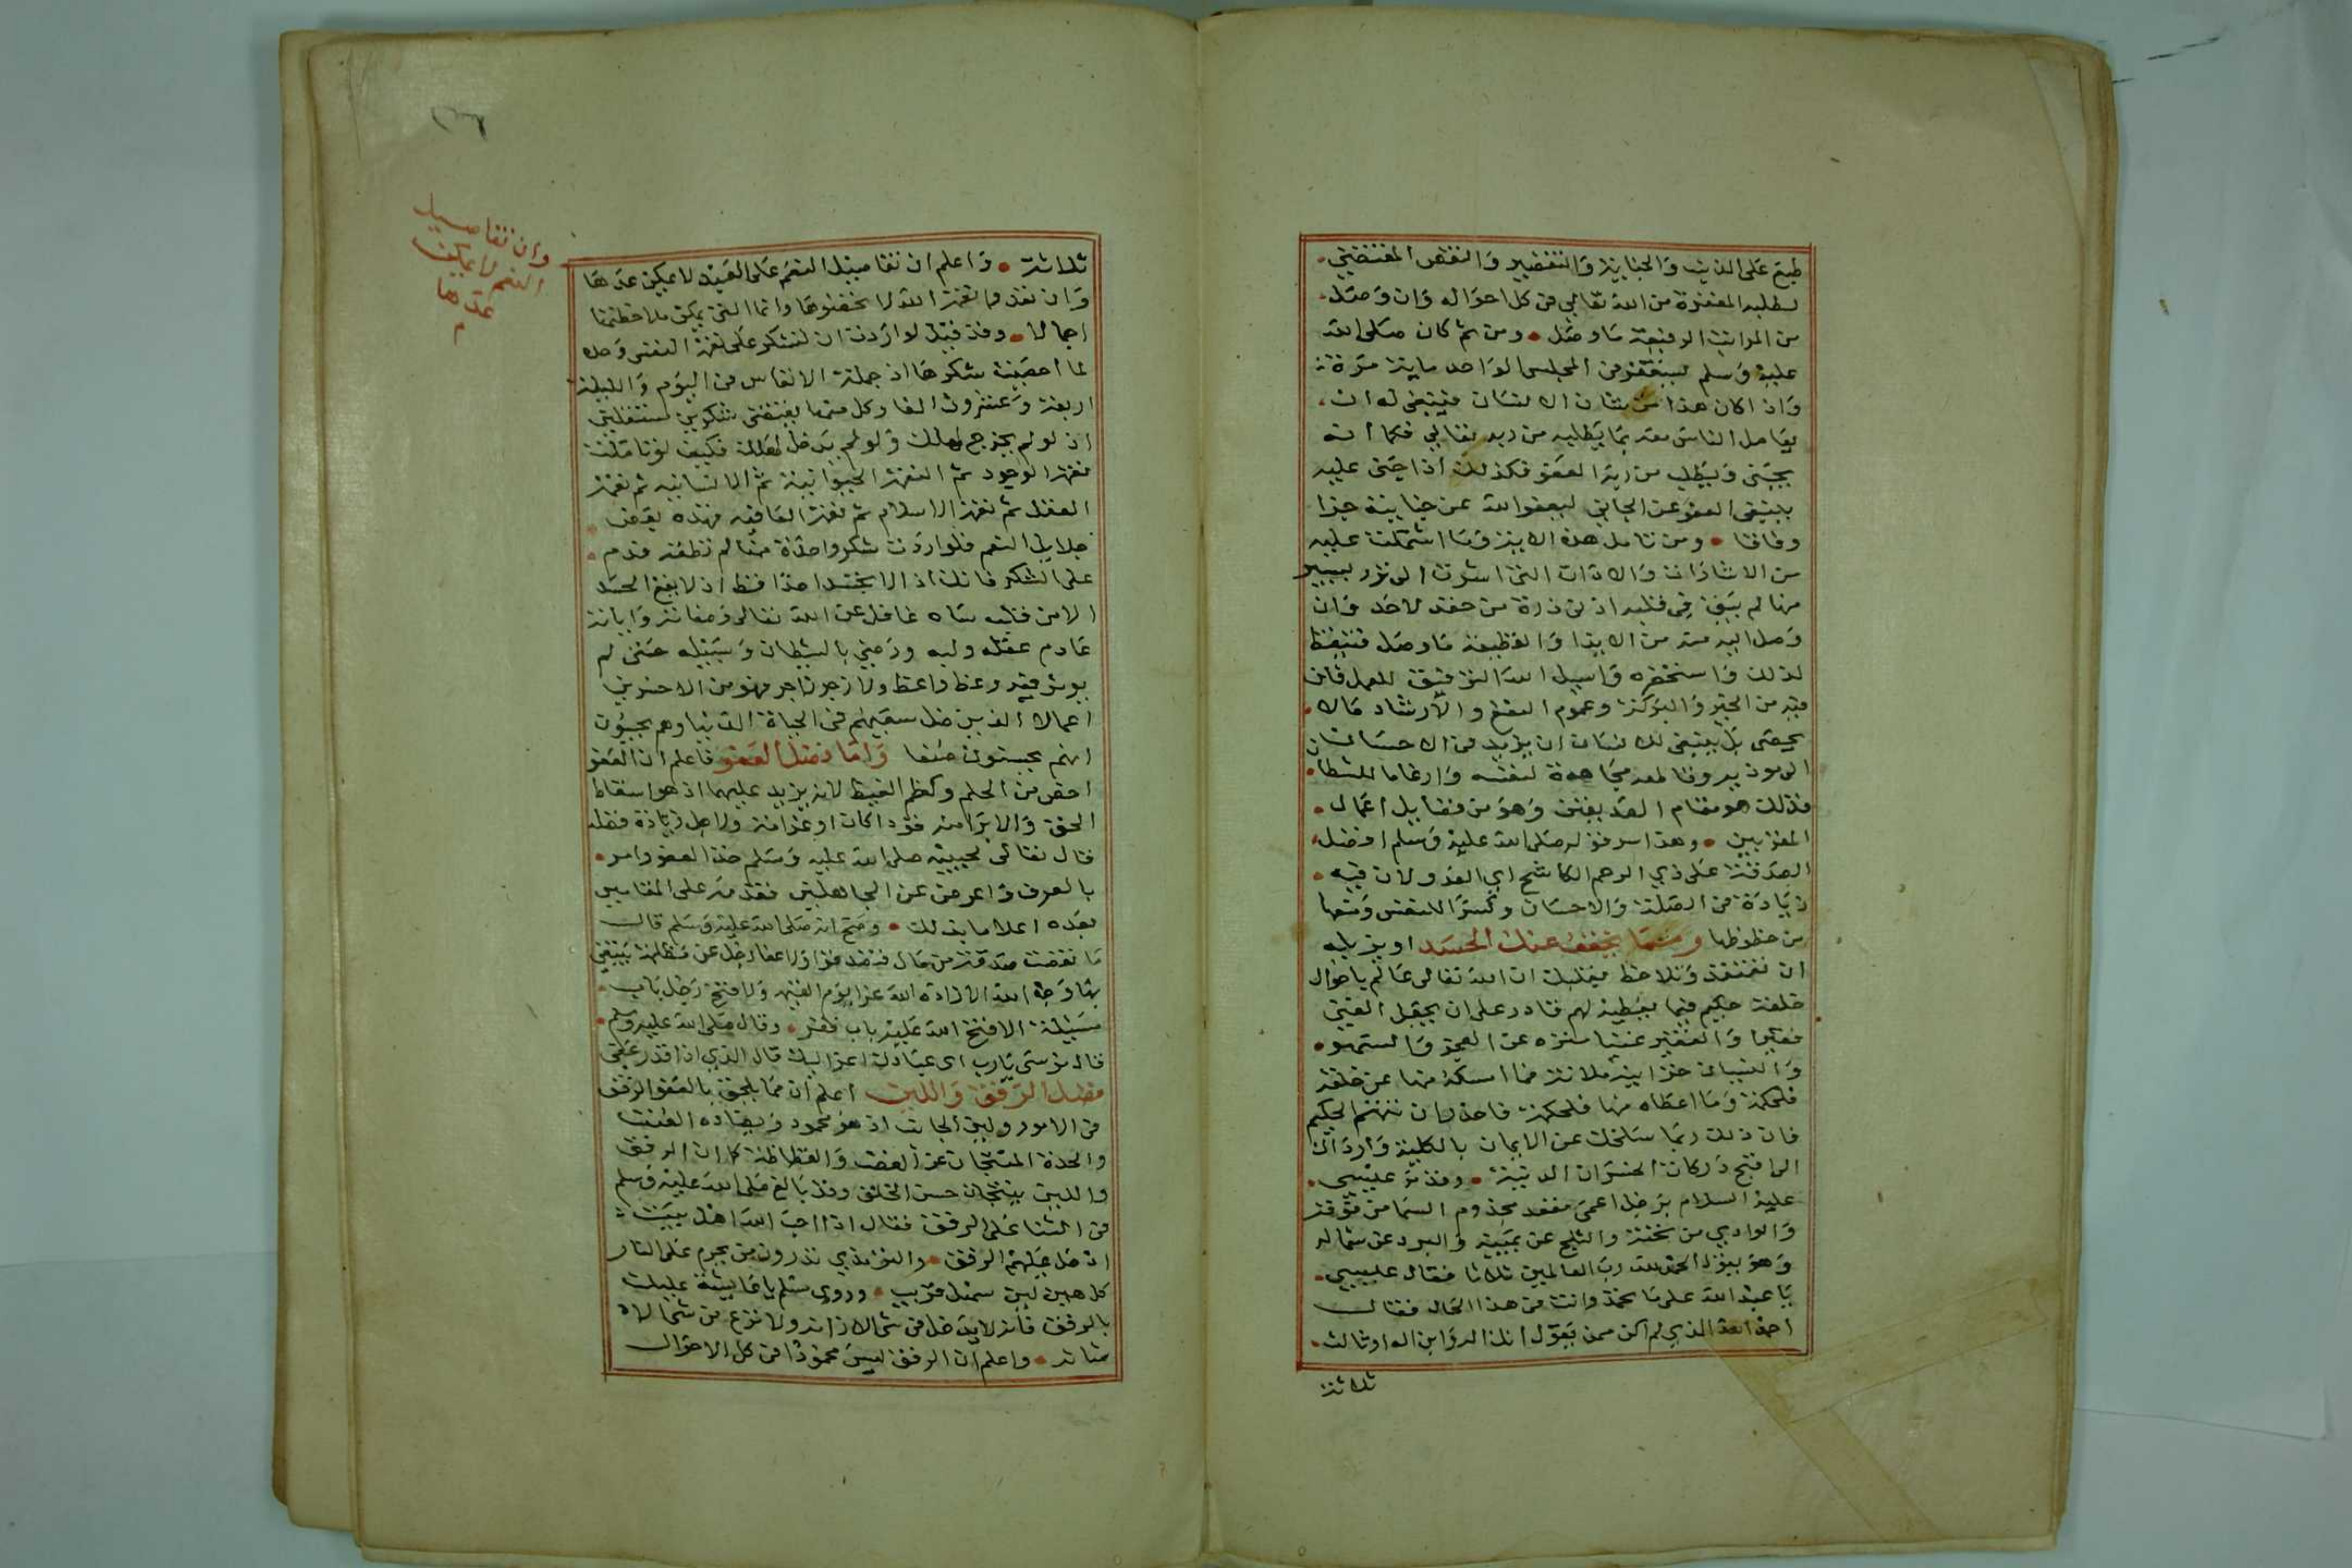 طبع على الذنب والجناية والتقصير والنقص المقتضي
لطلبه المغفرة من الله تعالى في كل احواله وان وصل
من المراتب الرفيعة ما وصل ومن ثم كان صلى الله
عليه وسلم يستغفر في المجلس الواحد ماية مرة
واذا كان هذا من شان الانسان فينبغي له ان
يعامل الناس معه بما يطلبه من ربه تعالى فكما انه
يجني ويطلب من ربه العفو فكذلك اذا جني عليه
ينبغي العفو عن الجاني ليعفو الله عن جنايته جزا
وفاقا ومن تامل هذه الاية وما اشتملت عليه
من الاشارات والادات التي اشرت الى نزر يسير
منها لم يبق في قلبه ادنى ذرة من حقد لاحد وان
وصل اليه منه من الايذا والقطيعة ما وصل فتيقظ
لذلك واستحضره واسيل الله التوفيق للعمل فان
فيه من الخير والبركة وعموم النفع والارشاد مالا
يحصى بل ينبغي للانسان ان يزيد في الاحسان
الى موذيه وظالمه مجاهدة لنفسه وارغاما للشيطان
فذلك هو مقام الصديقين وهو من فضايل اعمال
المقربين وهذا سر قوله صلى الله عليه وسلم افضل
الصدقة على ذي الرحم الكاشح اي العدو لان فيه
زيادة في الصلة والاحسان وكسرا للنفس ومنعها
من حظوظها ومما يخفف عنك الحسد او يزيله
ان تعتقد وتلاحظ بقلبك ان الله تعالى عالم باحوال
خلقه حكيم فيما يعطيه لهم قادر على ان يجعل الغني
فقيرا والفقير غنيا منزه عن العجز والسهو
والنسيان خزاينه ملانة فما امسكه منها عن خلقه
فلحكمة وما اعطاه منها فلحكمة فاحذر ان تتهم الحكيم
فان ذلك ربما سلخك عن الايمان بالكلية وارداك
الى اقبح دركات الخسران الدنية وقد مر عيسى
عليه السلام برجل اعمى مقعد مجذوم السما من فوقه
والوادي من تحته والثلج عن يمينه والبرد عن شماله
وهو يقول الحمد لله رب العالمين ثلاثا فقال عيسى
يا عبد الله على ما تحمد وانت في هذا الحال فقال
احمد الله الذي لم اكن ممن يقول انك اله وابن اله او ثالث
ثلاثة
ثلاثة واعلم ان تفاصيل النعم على العبد لا يمكن عدها
وان تعدوا نعمة الله لا تحصوها وانما التي يمكن ملاحظتها
اجمالا وقد قيل لو اردت ان تشكر على نعمة النفس وحده
لما احصيت شكرها اذ جملة الانفاس في اليوم والليلة
اربعة وعشرون الفا وكل منها يقتضي شكرين مستقلين
اذ لو لم يخرج لهلك ولو لم يدخل لهلك فكيف لو تاملت
نعمة الوجود ثم النعمة الحيوانية ثم الانسانية ثم نعمة
العقل ثم نعمة الاسلام ثم نعمة العافية فهذه بعض
جلايل النعم فلو اردت شكر واحدة منها لم تطقه فدم
على الشكر فانك اذا لا تحسد احدا قط اذ لا يقع الحسد
الا من قلب ساه غافل عن الله تعالى وصفاته واياته
عادم عقله ولبه ورضي بالشيطان وسبيله حتى لم
يوثر فيه وعظ واعظ ولا زجر زاجر فهو من الاخسرين
اعمالا الذين ضل سعيهم في الحياة الدنيا وهم يحسبون
انهم يحسنون صنعا واما فضل العفو فاعلم ان العفو
اخص من الحلم وكظم الغيظ لانه يزيد عليهما اذ هو اسقاط
الحق والابرا منه قودا كان او غرامة ولاجل زيادة فضله
قال تعالى لحبيبه صلى الله عليه وسلم خذ العفو وامر
بالعرف واعرض عن الجاهلين فقدمه على المقامين
بعده اعلاما بذلك وصح انه صلى الله عليه وسلم قال
ما نقصت صدقة من مال فتصدقوا ولا عفا رجل عن مظلمة يبتغي
بها وجه الله الا زاده الله عزا يوم القيمة ولا فتح رجل باب
مسيلة الا فتح الله عليه باب فقر وقال صلى الله عليه وسلم
قال موسى يارب اي عبادك اعز اليك قال الذي اذا قدر عفى
فضل الرفق واللين اعلم ان مما يلحق بالعفو الرفق
في الامور ولين الجانب اذ هو محمود ويضاده العنف
والحدة المنتجان عن الغضب والفظاظة كما ان الرفق
واللين ينتجان حسن الخلق وقد بالغ صلى الله عليه وسلم
في الثنا على الرفق فقال اذا احب الله اهل بيت
ادخل عليهم الرفق والترمذي تدرون من يحرم على النار
كل هين لين سهل قريب وروى مسلم يا عايشة عليك
بالرفق فانه لا يدخل في شي الا زانه ولا نزع من شي الا
شانه واعلم ان الرفق ليس محمودا في كل الاحوال
وان تفاصيل
النعم لا يمكن
عدها
م